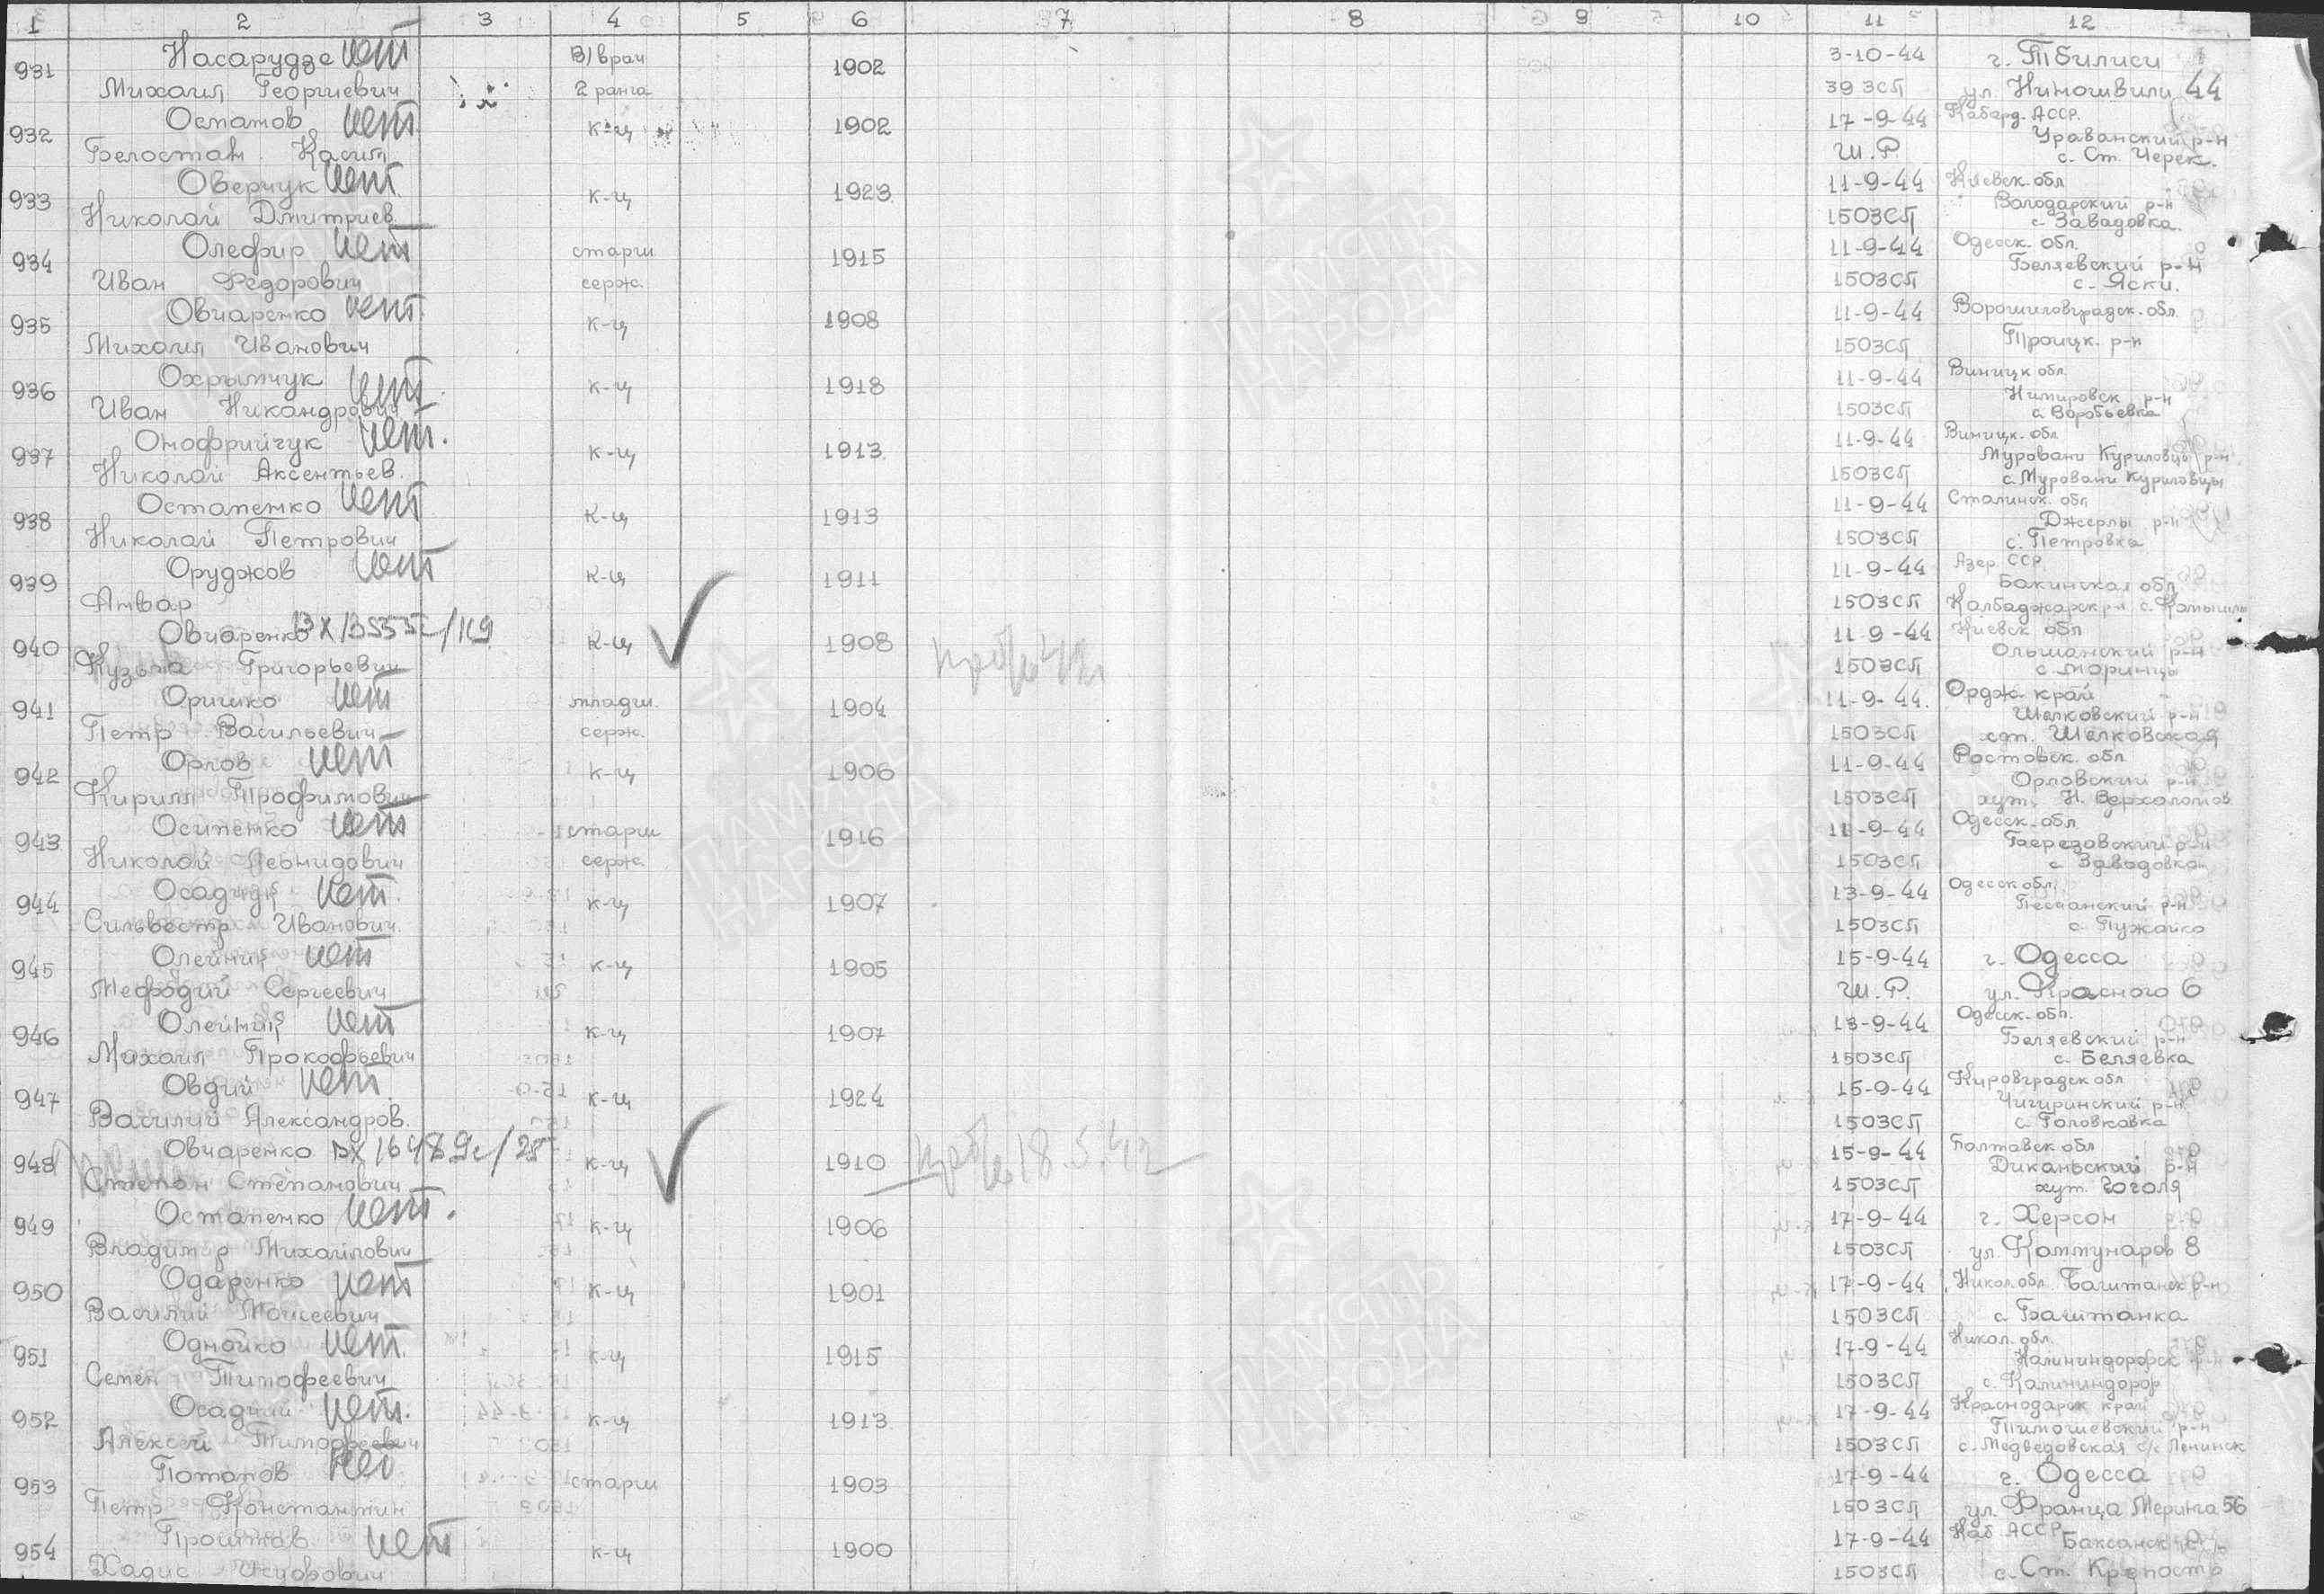 1 2 3 4 5 6 7 8 9 10 11 12
931 Насарудзе нет В/врач 1902 3-10-44 г. Тбилиси
Михаил Георгиевич 2 ранга 39 ЗСП ул. Ниношвили 44
932 Османов нет к-ц 1902 17-9-44 Кабард. АССР.
Урванский р-н
Белостан Касим Ш.Р. с. Ст. Черек.
933 Оверчук нет к-ц 1923 11-9-44 Киевск. обл
Володарский р-н
Николай Дмитриев. 150ЗСП с Завадовка.
934 Олефир нет старш 1915 11-9-44 Одесск. обл.
Беляевский р-н
Иван Федорович серж. 150ЗСП с. Яски.
935 Овчаренко нет к-ц 1908 11-9-44 Ворошиловградск. обл.
Михаил Иванович 150ЗСП Троицк. р-н
936 Охрымчук нет к-ц 1918 11-9-44 Виницк обл.
Нимировск р-н
Иван Никандрович 150ЗСП с. Воробьевка
937 Онофрийчук нет. к-ц 1913 11-9-44 Виницк. обл
Муровани Куриловцы р-н
Николай Аксентьев. 150ЗСП с. Муровани Куриловцы
938 Остапенко нет к-ц 1913 11-9-44 Сталинск. обл
р-н
Николай Петрович 150ЗСП с. Петровка
939 Оруджов нет к-ц 1911 11-9-44 Азер. ССР.
Бакинская обл
Анвар 150ЗСП Калбаджарск р-н с.
940 Овчаренко к-ц 1908 11-9-44 Киевск обл
Ольшанский р-н
Кузьма Григорьевич 150ЗСП с. Моринцы
941 Оришко нет младш. 1904 11-9-44. Ордж. край
Шелковский р-н
Петр Васильевич серж. 150ЗСП Шелковская
942 Орлов нет к-ц 1906 11-9-44 Ростовск. обл
Орловский р-н
Кирилл Трофимович 150ЗСП хут. Н. Верхоломов
943 Осипенко нет старш 1916 11-9-44 Одесск. обл.
Березовский р-н
Николай Леонидович серж. 150ЗСП с. Завадовка
944 Осадчук нет. к-ц 1907 13-9-44 Одесск обл.
Песчанский р-н
Сильвестр Иванович. 150ЗСП с. Пужайка
945 Олейник нет к-ц 1905 15-9-44 г. Одесса
Мефодий Сергеевич Ш.Р. ул. Красного 6
946 Олейник нет к-ц 1907 13-9-44 Одесск. обл.
Беляевский р-н
Михаил Прокофьевич 150ЗСП с. Беляевка
947 Овдий нет к-ц 1924 15-9-44 Кировградск обл
Чигиринский р-н
Василий Александров. 150ЗСП с. Головковка
948 Овчаренко к-ц 1910 18.5.42 15-9-44 Полтавск обл
Диканьский р-н
Степан Степанович 150ЗСП хут. Гоголя
949 Остапенко нет. к-ц 1906 17-9-44 г. Херсон
Владимир Михайлович 150ЗСП ул. Коммунаров 8
950 Одаренко нет к-ц 1901 17-9-44 Никол. обл. Баштанск р-н
Василий Моисеевич 150ЗСП с. Баштанка
951 Однойко нет. к-ц 1915 17-9-44 Никол. обл.
Калининдорфск р-н
Семен Тимофеевич 150ЗСП с. Калининдорф
952 Осадчий нет. к-ц 1913 17-9-44 Краснодарск край
Тимошевский р-н
Алексей Тимофеевич 150ЗСП с. Медведовская с/с Ленинск
953 Потапов нет старш 1903 17-9-44 г. Одесса
Петр Константин 150ЗСП ул. Франца Меринга 56
954 Проштов нет к-ц 1900 17-9-44 Каб АССР
Баксанск р-н
Хадис 150ЗСП с. Ст. Крепость
ПАМЯТЬ
НАРОДА